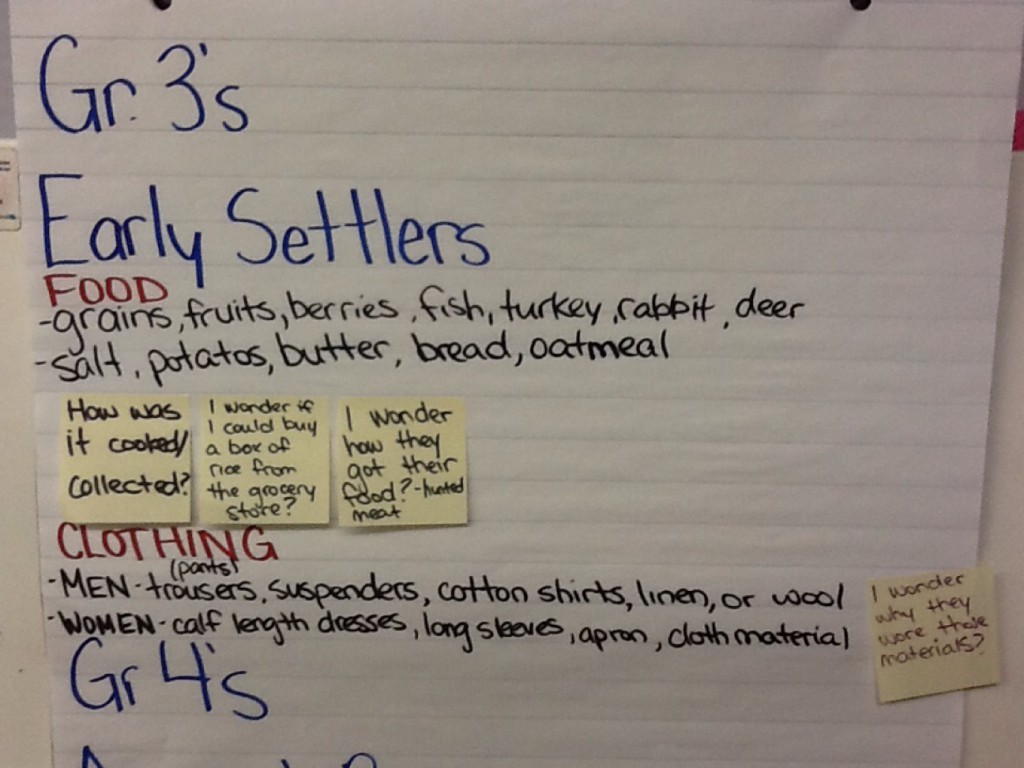 Gr. 3's
Early Settlers
FOOD
-grains, fruits, berries, fish, turkey, rabbit, deer
-salt, potatos, butter, bread, oatmeal
How was
it cooked/
collected?
I wonder if
I could buy
a box of
rice from
the grocery
store?
I wonder
how they
got their
food? -hunted
meat
CLOTHING
(pants)
-MEN-trousers, suspenders, cotton shirts, linen, or wool
-WOMEN-calf length dresses, long sleeves, apron, cloth material
I wonder
why they
wore those
materials?
Gr 4's